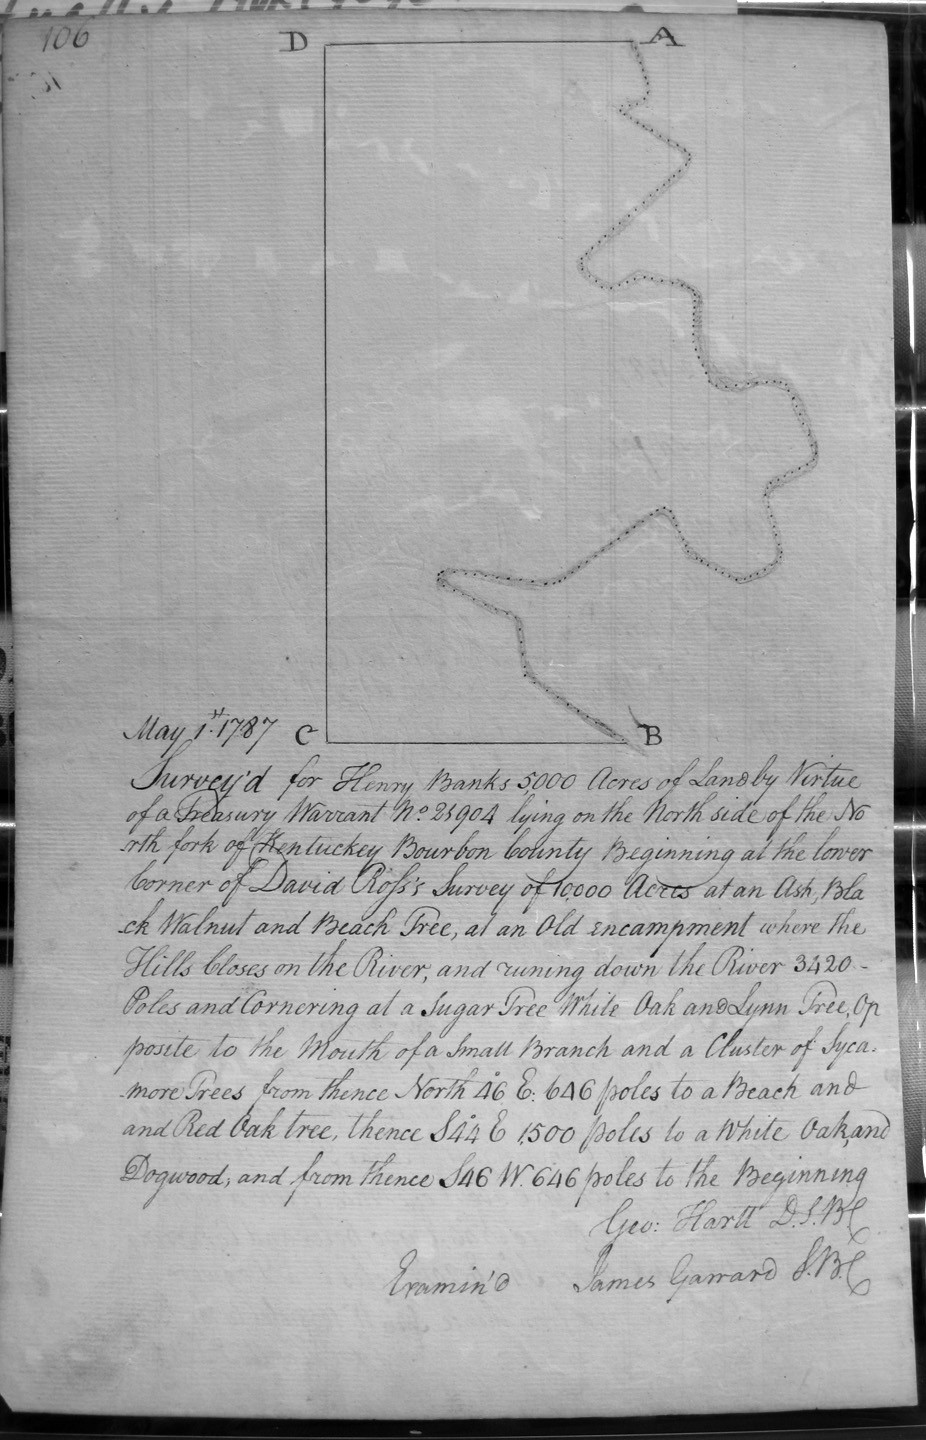 106
D A
May 1st. 1787 C B
Survey'd for Henry Banks 5,000 Acres of Land by Virtue
of a Treasury Warrant No 23904 lying on the North side of the No
rth fork of Kentuckey Bourbon County Beginning at the lower
Corner of David Ross's Survey of 10,000 Acres at an Ash, Bla
ck Walnut and Beach Tree, at an Old encampment where the
Hills Closes on the River, and runing down the River 3420 -
Poles and Cornering at a Sugar Tree White Oak and Lynn Tree, Op
posite to the Mouth of a Small Branch and a Cluster of Syca.
more Trees from thence North 46° E: 646 poles to a Beach and
and Red Oak tree, thence S44° E 1,500 poles to a White Oak, and
Dogwood, and from thence S46 W. 646 poles to the Beginning
Geo: Hartt D.S.BC
Examin'd James Garrard S.BC